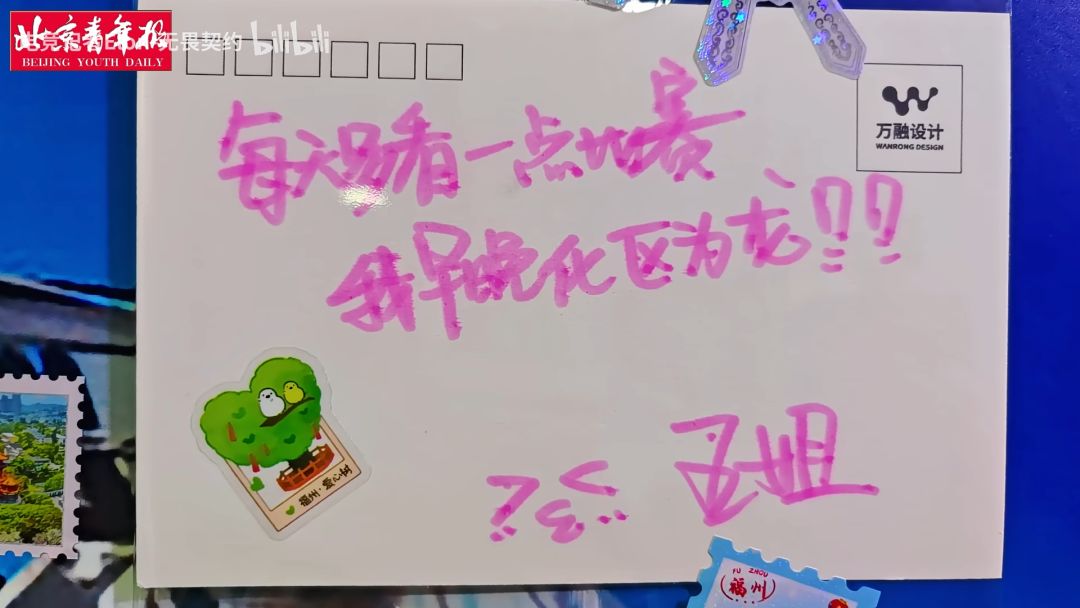 北京青年报
BEIJING YOUTH DAILY
无畏契约 bilibili
万融设计
WANRONG DESIGN
每天多看一点比赛
我早晚化区为龙!!
玉姐
福州·爱心树
FU ZHOU
福州